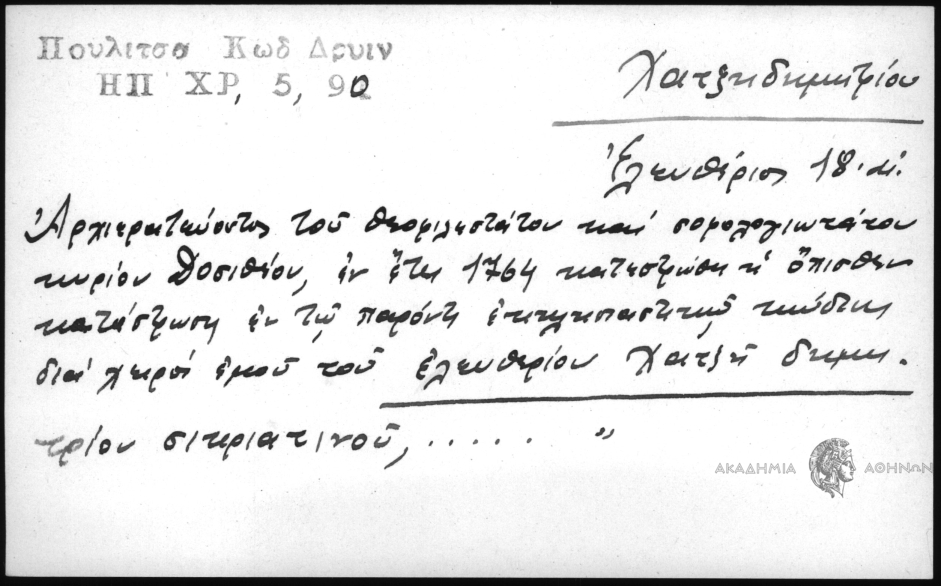 Πουλιτσα Κωδ Δρυιν
ΗΠ ΧΡ, 5, 90
Χατζηδημητρίου
Ἐλευθέριος 18.αἰ.
Ἀρχιερατεύοντος τοῦ θεοφιλεστάτου καί σοφολογιωτάτου
κυρίου Δοσιθέου, ἐν ἔτει 1764 κατεστρώθη ἡ ὄπισθεν
κατάστρωση ἐν τῷ παρόντι ἐκκλησιαστικῷ κώδικι
διά χειρός ἐμοῦ τοῦ ἐλευθερίου Χατζῆ δημη-
τρίου σικριατινοῦ, . . . . . . "
ΑΚΑΔΗΜΙΑ ΑΘΗΝΩΝ